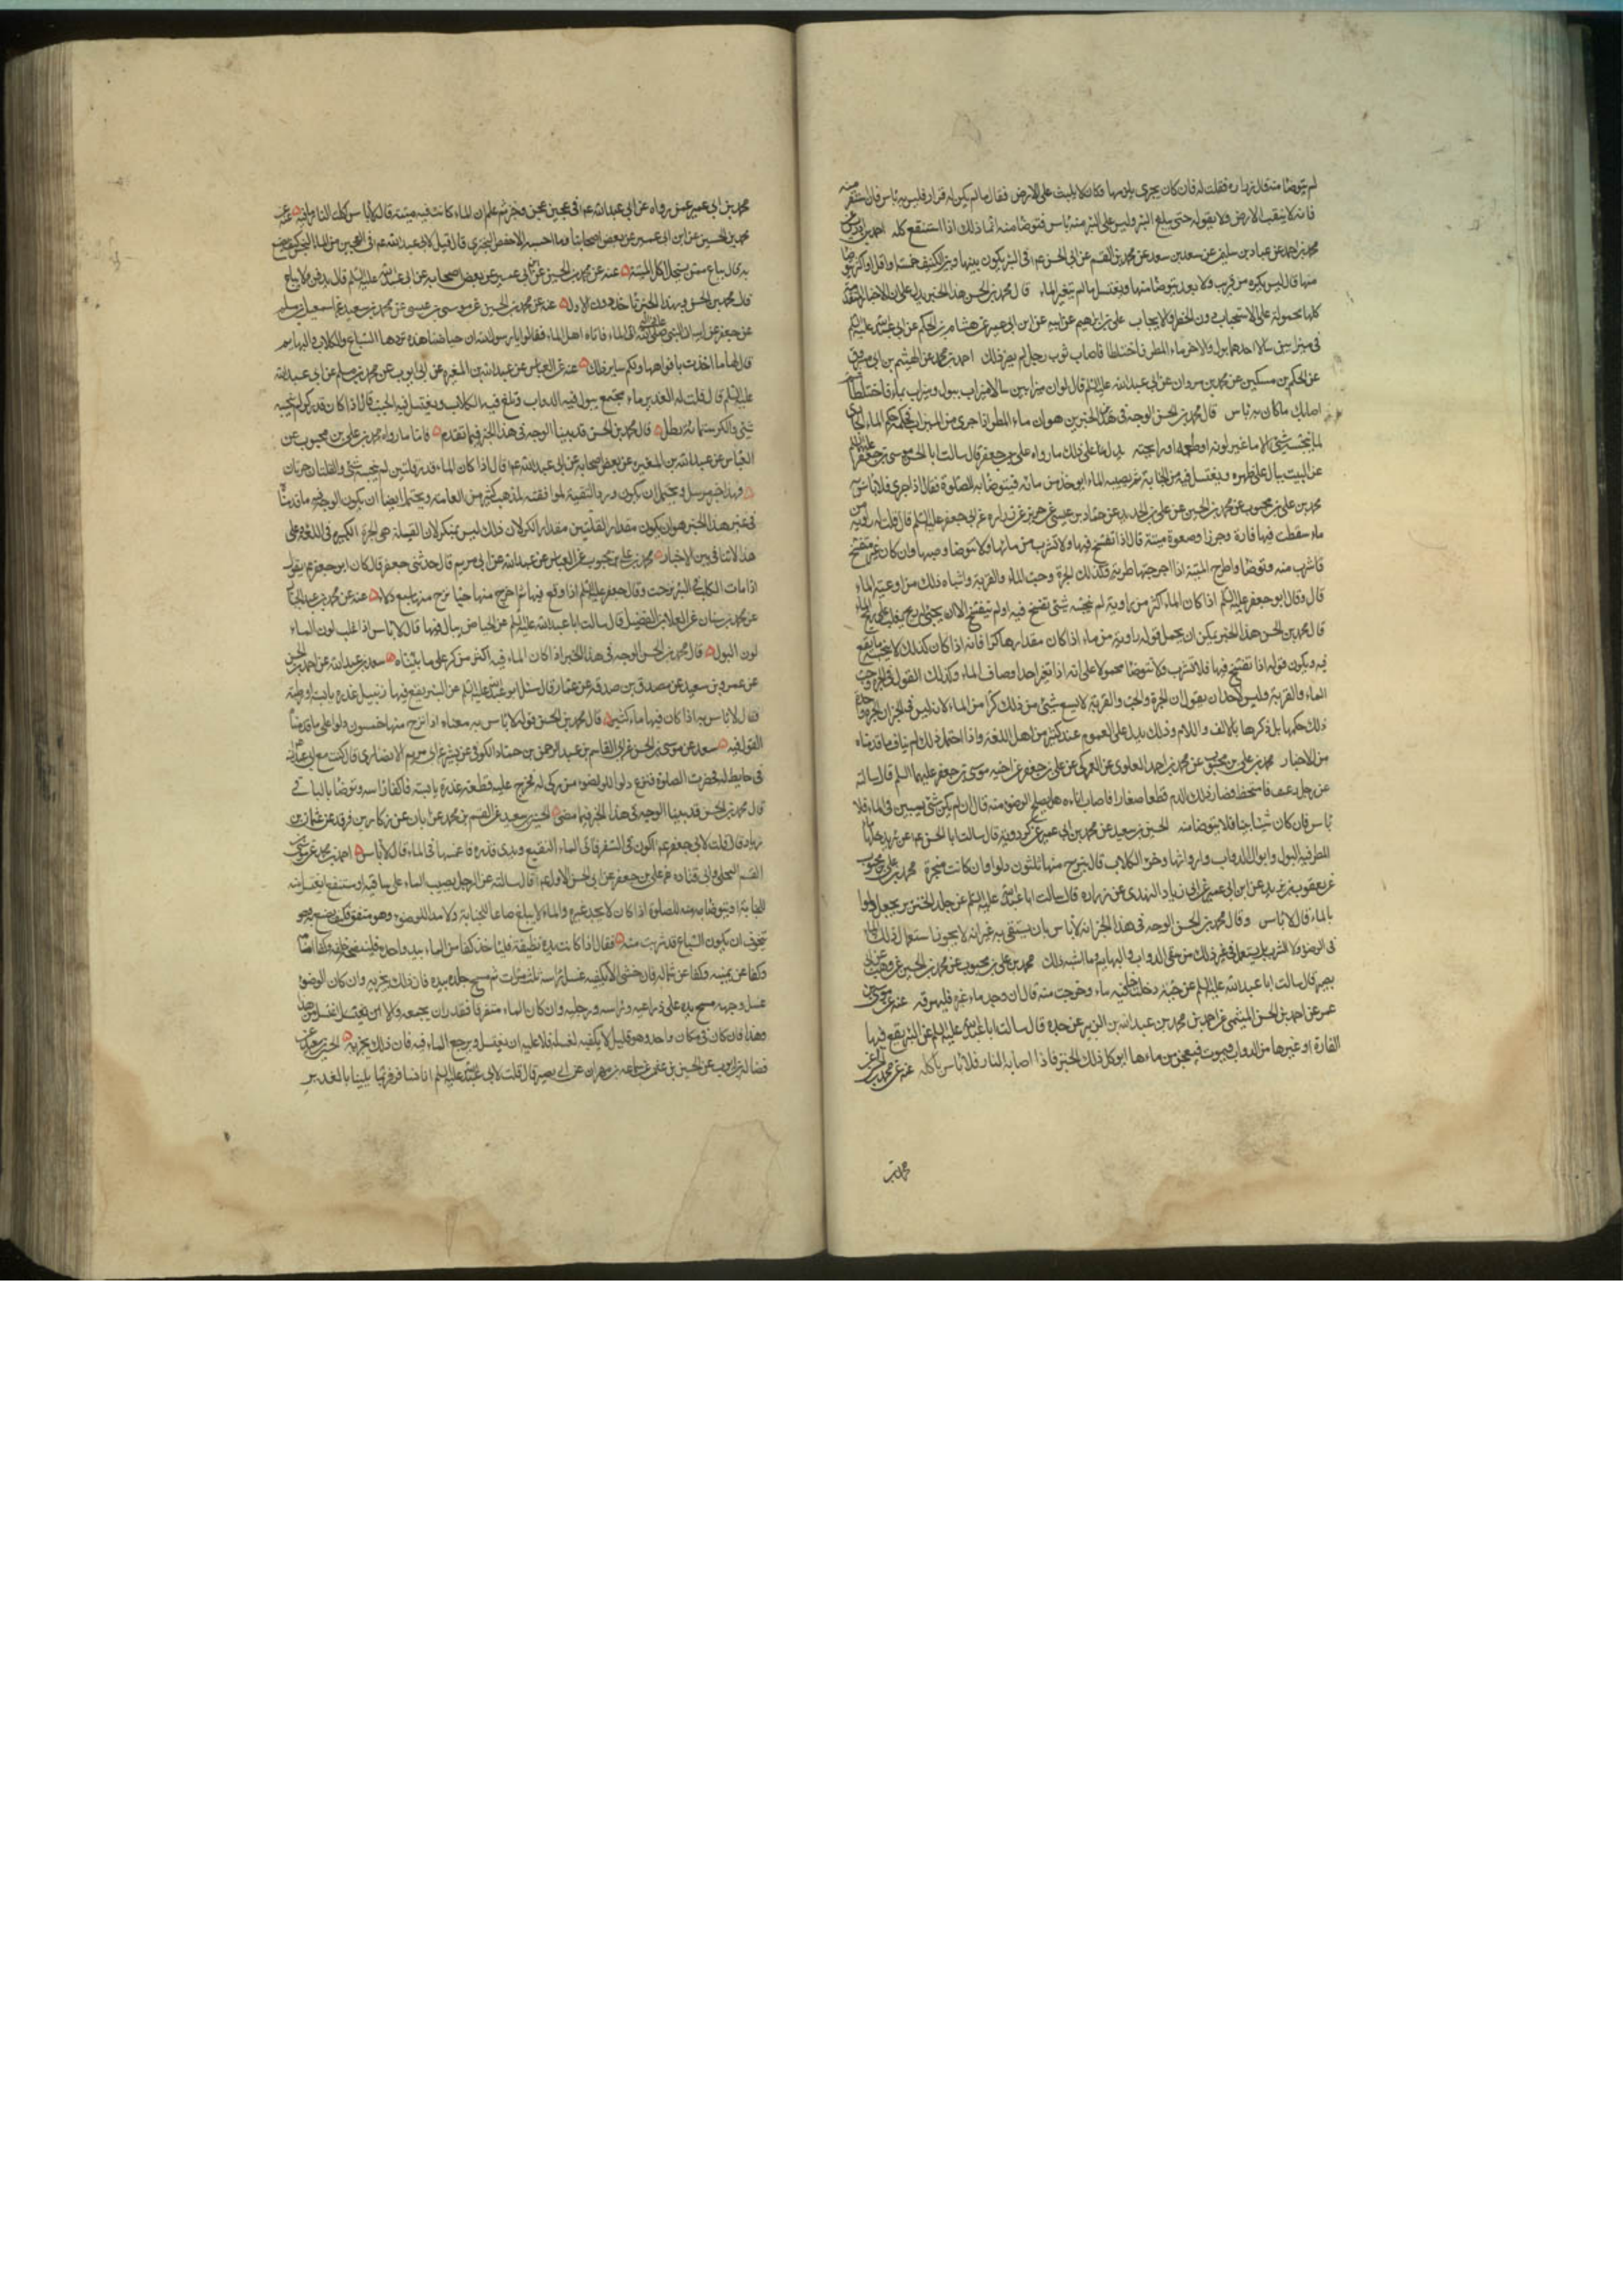 لم يتوضا منه قال زرارة فقلت له فان كان يجرى بلزمها وكان لا يلبث على الارض فقال ما لم يكن له قرار فليس به باس فان استقر منه
فانه لا ينقب الارض ولا يغوله حتى يبلغ البئر وليس على البئر منه باس فتوضا منه انما ذلك اذا استنقع كله احمد بن ادريس عن
محمد بن احمد عن عباد بن سليمن عن سعد بن سعد عن محمد بن القسم عن ابى الحسن ع م فى البئر يكون بينها وبين الكنيف خمسة واقل واكثر يتوضا
منها قال ليس يكره من قرب ولا بعد يتوضا منها ويغتسل ما لم يتغير الماء قال محمد بن الحسن هذا الخبر يدل على ان الاخبار المتقدمة
كلها محمولة على الاستحباب دون الحظر والايجاب على بن ابراهيم عن ابيه عن ابن ابى عمير عن هشام بن الحكم عن ابى عبد الله عليه السلم
فى ميزابين سالا احدهما بول والاخر ماء المطر فاختلطا فاصاب ثوب رجل لم يضر ذلك احمد بن محمد عن الهيثم بن ابى مسروق
عن الحكم بن مسكين عن محمد بن مروان عن ابى عبد الله عليه السلم قال لو ان ميزابين سالا ميزاب ببول وميزاب بماء فاختلطا ثم
اصابك ما كان به باس قال محمد بن الحسن الوجه فى هذين الخبرين هو ان ماء المطر اذا جرى من الميزاب فحكمه حكم الماء الجارى
لا ينجسه شئ الا ما غير لونه او طعمه او رايحته يدل على ذلك ما رواه على بن جعفر قال سالت ابا الحسن موسى بن جعفر عليهما السلم
عن البيت يبال على ظهره ويغتسل فيه من الجنابة ثم يصيبه الماء ايوخذ من مائه فيتوضا به للصلوة فقال اذا جرى فلا باس به
محمد بن على بن محبوب عن محمد بن الحسين عن على بن حديد عن حماد بن عيسى عن حريز عن زرارة عن ابى جعفر عليه السلم قال قلت له راوية من
ماء سقطت فيها فارة وجرذ او صعوة ميتة قال اذا تفسخ فيها ولا تشرب من مائها ولا تتوضا وصبها وان كان غير متفسخ
فاشرب منه وتوضا واطرح الميتة اذا اخرجتها طرية وكذلك الجرة وحب الماء والقربة واشباه ذلك من اوعية الماء
قال وقال ابو جعفر عليه السلم اذا كان الماء اكثر من راوية لم ينجسه شئ تفسخ فيه او لم يتفسخ الا ان يجئ له ريح يغلب على ريح الماء
قال محمد بن الحسن هذا الخبر يمكن ان يحمل قوله راوية من ماء اذا كان مقدارها كرا فانه اذا كان كذلك لا ينجسه ما يقع
فيه ويكون قوله اذا تفسخ فيها فلا تشرب ولا تتوضا محمولا على انه اذا تغير احد اوصاف الماء وكذلك القول فى الجرة وحب
الماء والقربة وليس لاحد ان يقول ان الجرة والحب والقربة لا يسع شئ من ذلك كرا من الماء لانه ليس فى الخبر ان جرة واحدة
ذلك حكمها بل ذكرها بالالف واللام وذلك يدل على العموم عند كثير من اهل اللغة واذا احتمل ذلك لم يناف ما قدمناه
من الاخبار محمد بن على بن محبوب عن محمد بن احمد العلوى عن العمركى عن على بن جعفر عن اخيه موسى بن جعفر عليهما السلم قال سالته
عن رجل رعف فامتخط فصار ذلك الدم قطعا صغارا فاصاب اناءه هل يصلح الوضوء منه قال ان لم يكن شئ يستبين فى الماء فلا
باس فان كان شيئا بينا فلا يتوضا منه الحسين بن سعيد عن محمد بن ابى عمير عن كردويه قال سالت ابا الحسن ع م عن بئر يدخلها ماء
المطر فيه البول وابوال الدواب وارواثها وخرؤ الكلاب قال ينزح منها ثلثون دلوا وان كانت مبخرة محمد بن على بن محبوب
عن يعقوب بن يزيد عن ابن ابى عمير عن ابى زياد النهدى عن زرارة قال سالت ابا عبد الله عليه السلم عن جلد الخنزير يجعل دلوا
بالماء قال لا باس وقال محمد بن الحسن الوجه فى هذا الخبر انه لا باس بان يستقى به غير انه لا يجوز استعمال ذلك الماء
فى الوضوء ولا الشرب بل يستعمل فى غير ذلك من سقى الدواب والبهايم وما اشبه ذلك محمد بن على بن محبوب عن محمد بن الحسين عن وهيب عن ابى
بصير قال سالت ابا عبد الله عليه السلم عن حية دخلت حبا فيه ماء وخرجت منه قال ان وجد ماء غيره فليهرقه عنه عن موسى بن
عمر عن احمد بن الحسن الميثمى عن احمد بن محمد بن عبد الله بن الزبير عن جده قال سالت ابا عبد الله عليه السلم عن البئر يقع فيها
الفارة او غيرها من الدواب فيموت فيعجن من مائها ايوكل ذلك الخبز قال اذا اصابه النار فلا باس باكله عنه عن محمد بن الحسين عن
محمد بن
محمد بن ابى عمير عمن رواه عن ابى عبد الله ع م فى عجين عجن وخبز ثم علم ان الماء كانت فيه ميتة قال لا باس اكلت النار ما فيه عنه عن
محمد بن الحسين عن ابن ابى عمير عن بعض اصحابنا وما احسبه الا حفص البخترى قال قيل لابى عبد الله ع م فى العجين من الماء النجس كيف يصنع
به قال يباع ممن يستحل اكل الميتة عنه عن محمد بن الحسين عن ابن ابى عمير عن بعض اصحابه عن ابى عبد الله عليه السلم قال يدفن ولا يباع
قال محمد بن الحسن وبهذا الخبر ناخذ دون الاول عنه عن محمد بن الحسين عن موسى بن عيسى عن محمد بن سعيد عن اسمعيل بن مسلم
عن جعفر عن ابيه ان النبى صلى الله عليه واله اتى الماء فاتاه اهل الماء فقالوا يا رسول الله ان حياضنا هذه تردها السباع والكلاب والبهايم
قال لها ما اخذت بافواهها ولكم ساير ذلك عنه عن العباس عن عبد الله بن المغيرة عن ابى ايوب عن محمد بن مسلم عن ابى عبد الله
عليه السلم قال قلت له الغدير ماء مجتمع يبول فيه الدواب وتلغ فيه الكلاب ويغتسل فيه الجنب قال اذا كان قدر كر لم ينجسه
شئ والكر ستمائة رطل قال محمد بن الحسن قد بينا الوجه فى هذا الخبر فيما تقدم فاما ما رواه محمد بن على بن محبوب عن
العباس عن عبد الله بن المغيرة عن بعض اصحابه عن ابى عبد الله ع م قال اذا كان الماء قدر قلتين لم ينجسه شئ والقلتان جرتان
فهذا خبر مرسل ويحتمل ان يكون ورد للتقية لموافقته لمذهب كثير من العامة ويحتمل ايضا ان يكون الوجه فيه ما قدمنا
فى غير هذا الخبر هو ان يكون مقدار القلتين مقدار الكر لان ذلك ليس بمنكر لان القلة هى الجرة الكبيرة فى اللغة وعلى
هذا لا تنافى بين الاخبار محمد بن على بن محبوب عن العباس عن عبد الله عن ابى مريم قال حدثنى جعفر قال كان ابو جعفر ع م يقول
اذا مات الكلب فى البئر نزحت وقال جعفر عليه السلم اذا وقع فيها ثم اخرج منها حيا نزح منها سبع دلاء عنه عن محمد بن عبد الجبار
عن محمد بن سنان عن العلا بن الفضيل قال سالت ابا عبد الله عليه السلم عن الحياض يبال فيها قال لا باس اذا غلب لون الماء
لون البول قال محمد بن الحسن الوجه فى هذا الخبر اذا كان الماء فيه اكثر من كر على ما بيناه سعد بن عبد الله عن احمد بن الحسن
عن عمرو بن سعيد عن مصدق بن صدقة عن عمار قال سئل ابو عبد الله عليه السلم عن البئر يقع فيها زنبيل عذرة يابسة او رطبة
فقال لا باس به اذا كان فيها ماء كثير قال محمد بن الحسن قوله لا باس به معناه اذا نزح منها خمسون دلوا على ما قدمنا
القول فيه سعد عن موسى بن الحسن عن ابى القاسم بن عبد الرحمن بن حماد الكوفى عن بشير عن ابى مريم الانصارى قال كنت مع ابى عبد الله
فى حايط له فحضرت الصلوة فنزح دلوا للوضوء من ركى له فخرج عليه قطعة عذرة يابسة فاكفا راسه وتوضا بالباقى
قال محمد بن الحسن قد بينا الوجه فى هذا الخبر فيما مضى الحسين بن سعيد عن القسم بن محمد عن ابان عن زكار بن فرقد عن عثمان بن
زياد قال قلت لابى جعفر ع م اكون فى السفر فاتى الماء النقيع ويدى قذرة فاغمسها فى الماء قال لا باس احمد بن محمد عن موسى بن
القسم البجلى وابى قتادة عن على بن جعفر عن ابى الحسن الاول ع م قال سالته عن الرجل يصيب الماء على ساقية او مستنقع ايغتسل منه
للجنابة او يتوضا به منه للصلوة اذا كان لا يجد غيره والماء لا يبلغ صاعا للجنابة ولا مدا للوضوء وهو متفرق فكيف يصنع وهو
يتخوف ان يكون السباع قد شربت منه فقال اذا كانت يده نظيفة فلياخذ كفا من الماء بيد واحدة فلينضحه خلفه وكفا امامه
وكفا عن يمينه وكفا عن شماله فان خشى الا يكفيه غسل راسه ثلث مرات ثم مسح جلده بيده فان ذلك يجزيه وان كان الوضوء
غسل وجهه مسح يده على ذراعيه وراسه ورجليه وان كان الماء متفرقا فقدر ان يجمعه والا اغتسل من هذا
وهذا فان كان فى مكان واحد وهو قليل لا يكفيه لغسله فلا عليه ان يغتسل ويرجع الماء فيه فان ذلك يجزيه الحسين بن سعيد عن
فضالة بن ايوب عن الحسين بن عثمن عن سماعة بن مهران عن ابى بصير قال قلت لابى عبد الله عليه السلم انا نسافر فربما بلينا بالغدير